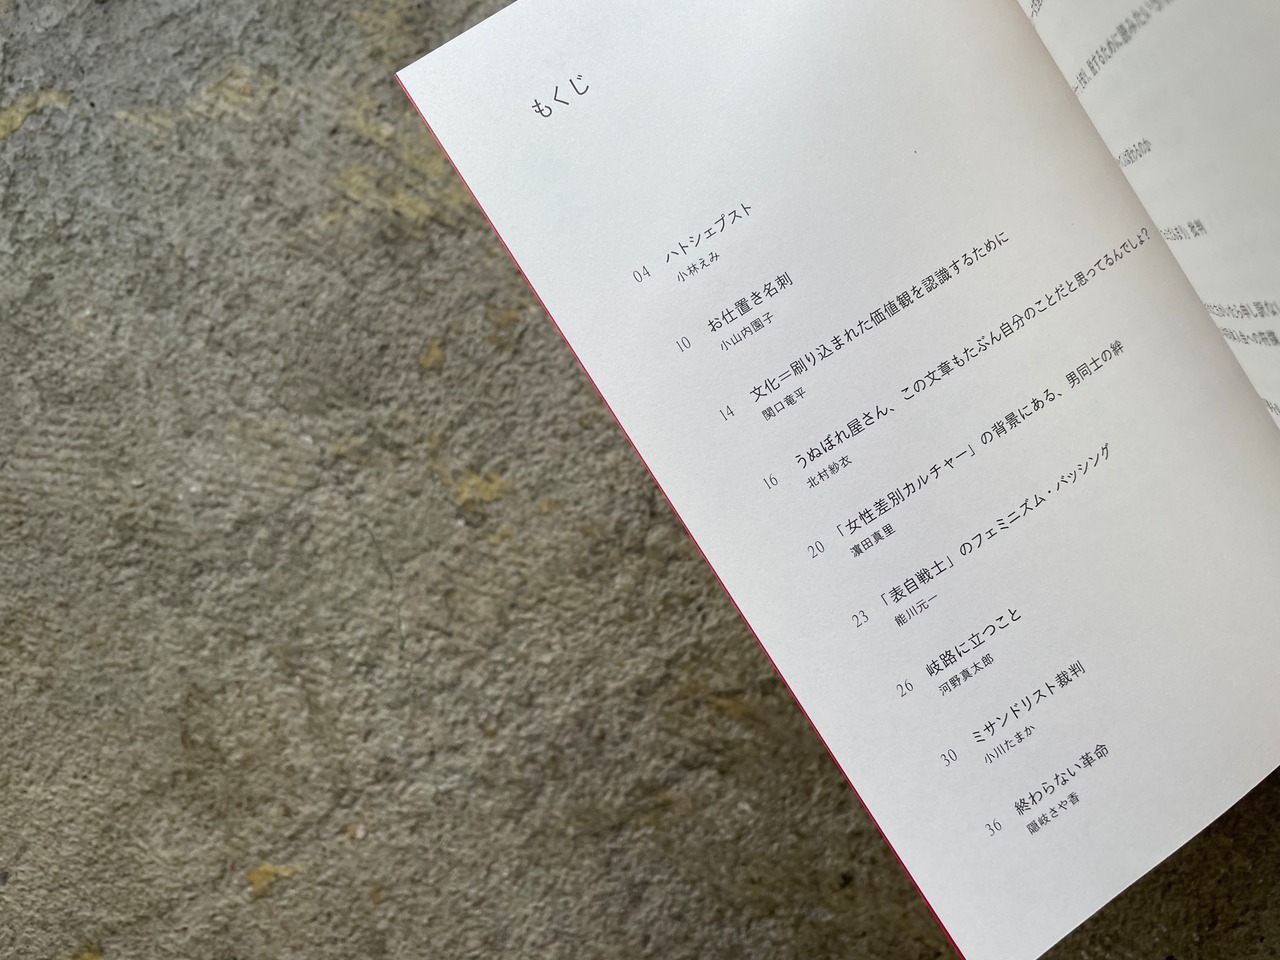 もくじ
04 ハトシェプスト
小林えみ
10 お仕置き名刺
小山内園子
14 文化＝刷り込まれた価値観を認識するために
関口竜平
16 うぬぼれ屋さん、この文章もたぶん自分のことだと思ってるんでしょ？
北村紗衣
20 「女性差別カルチャー」の背景にある、男同士の絆
濵田真里
23 「表自戦士」のフェミニズム・バッシング
能川元一
26 岐路に立つこと
河野真太郎
30 ミサンドリスト裁判
小川たまか
36 終わらない革命
隠岐さや香
批判